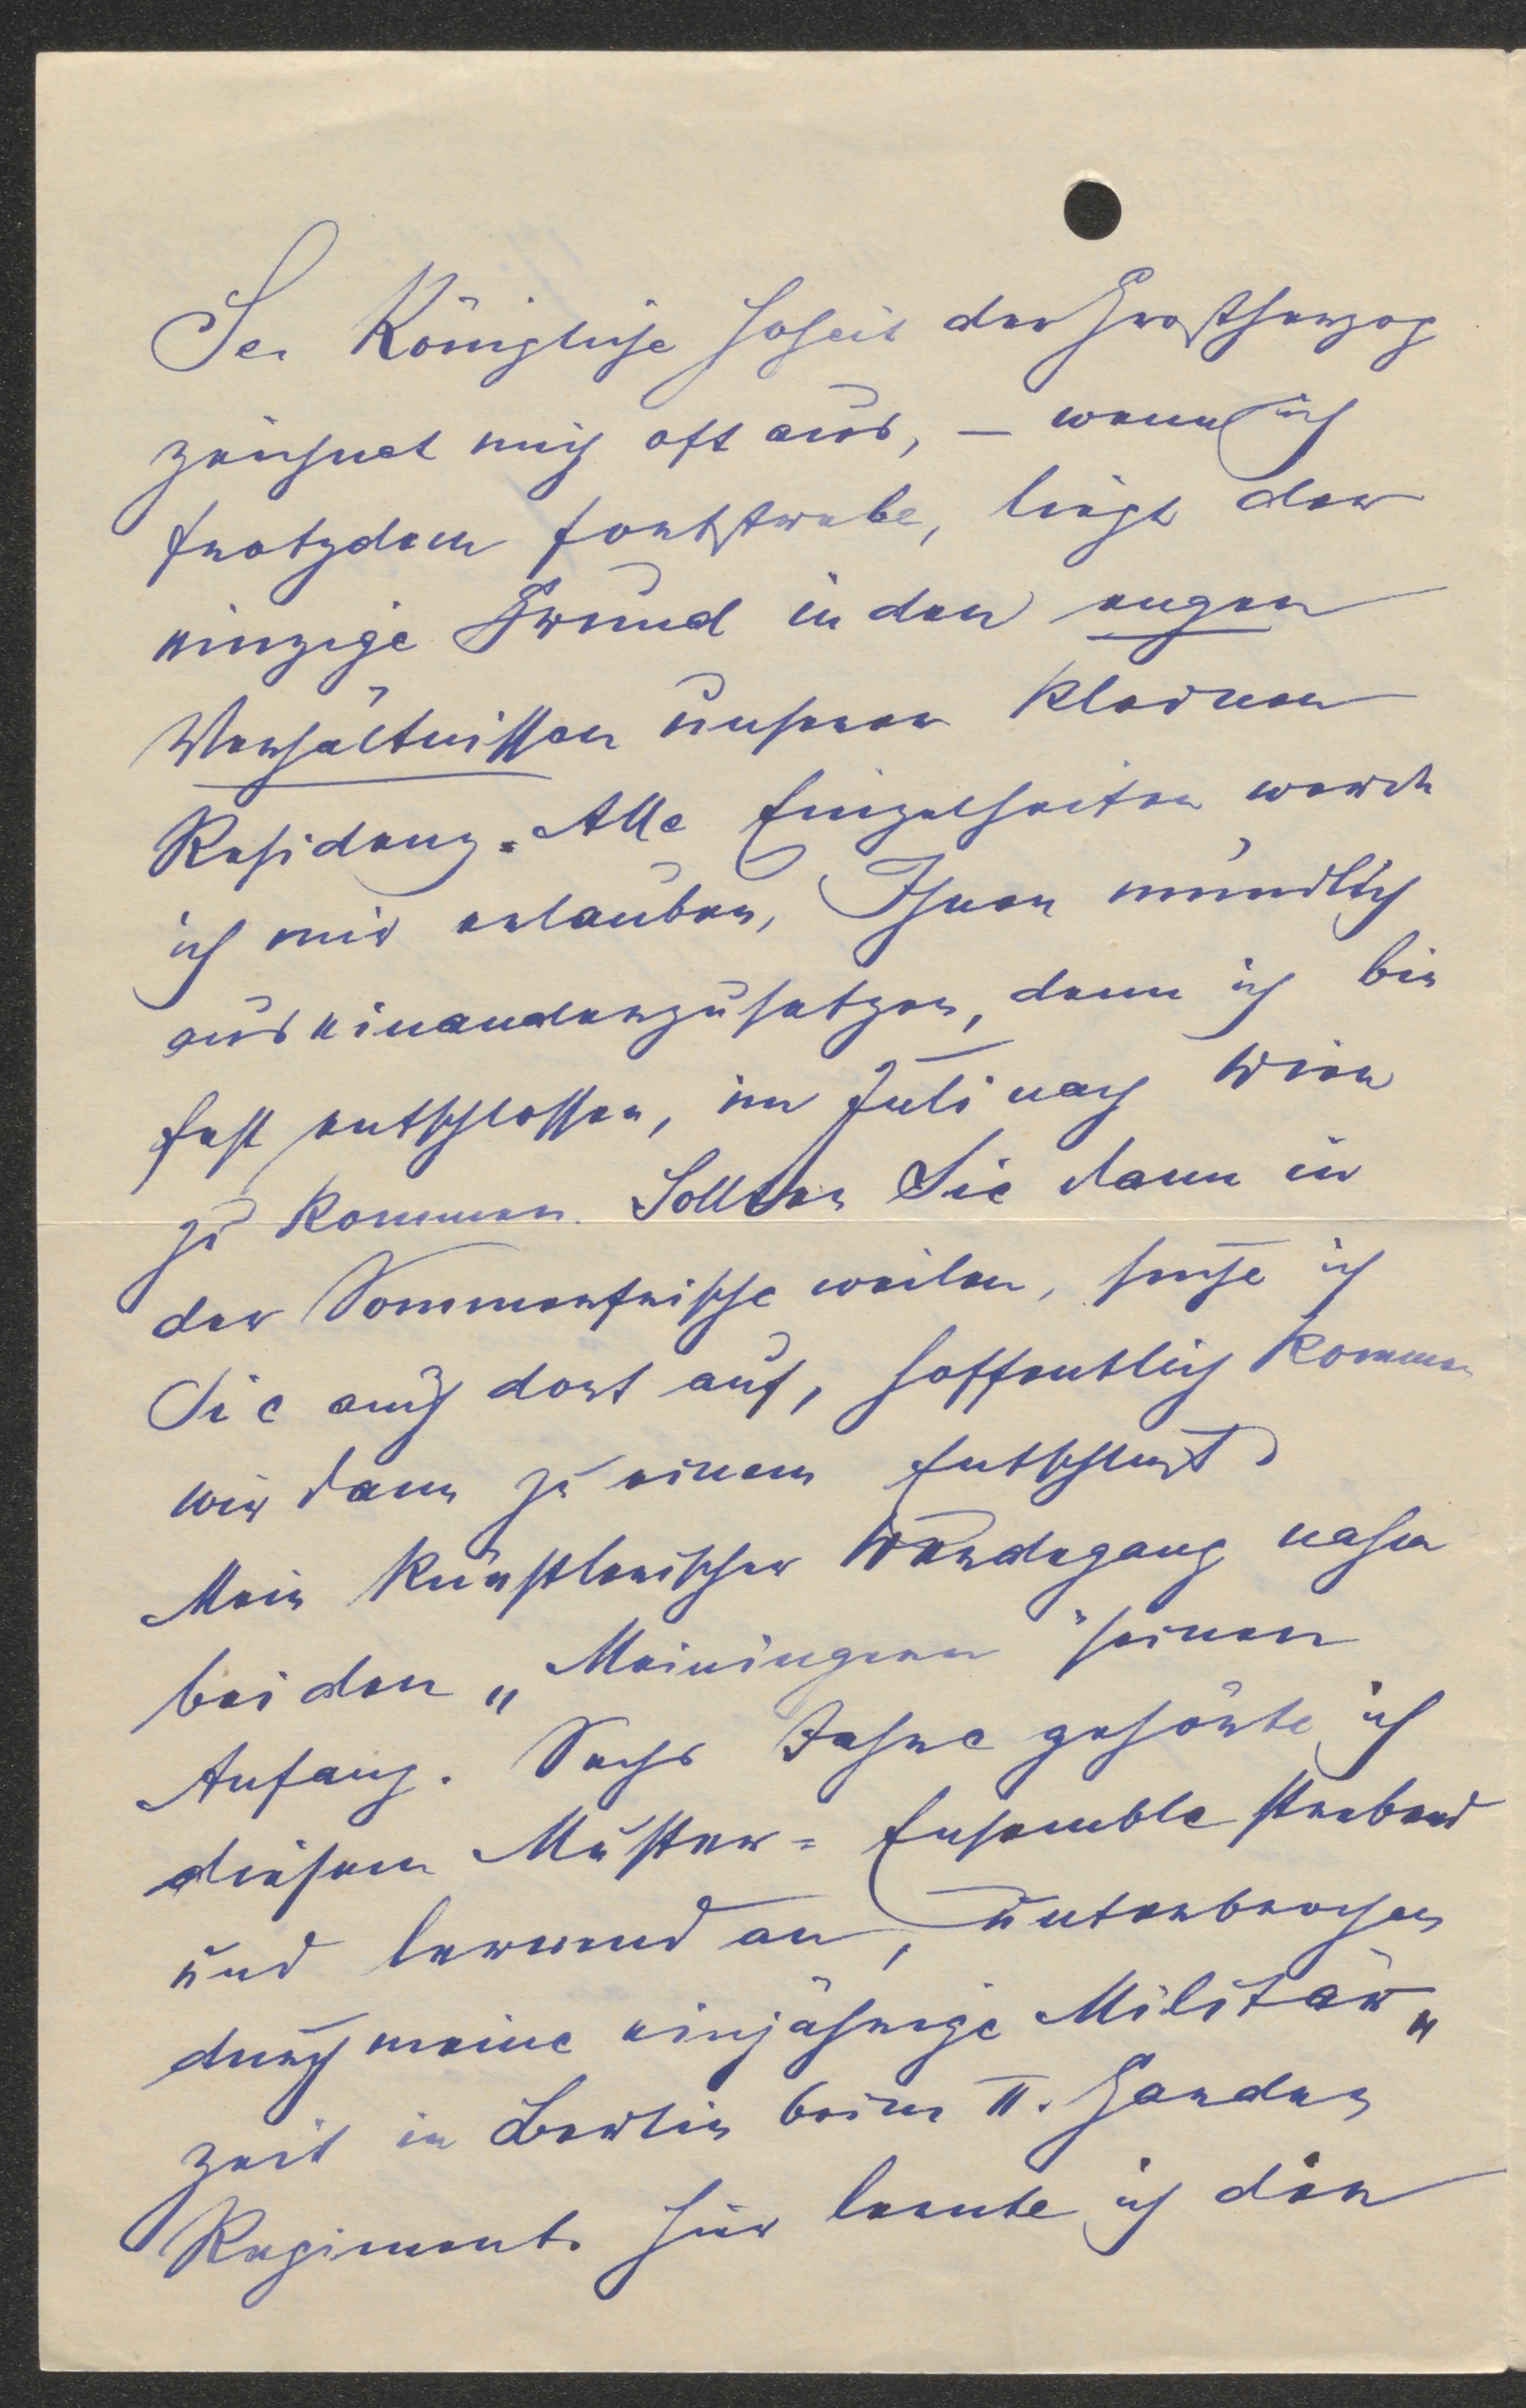 Se. Königliche Hoheit der Großherzog
zeichnet mich oft aus, – wenn ich
trotzdem fortstrebe, liegt der
einzige Grund in den engen
Verhältnissen unserer kleinen
Residenz. Alle Einzelheiten werde
ich mir erlauben, Ihnen mündlich
auseinanderzusetzen, denn ich bin
fest entschlossen, im Juli nach Wien
zu kommen. Sollten Sie dann in
der Sommerfrische weilen, suche ich
Sie auch dort auf, hoffentlich kommen
wir dann zu einem Entschluß.
Mein künstlerischer Werdegang nahm
bei den „Meiningern" seinen
Anfang. Sechs Jahre gehörte ich
diesem Muster-Ensemble strebend
und lernend an, unterbrochen
durch meine einjährige Militär-
zeit in Berlin beim II. Garde
Regiment. Hier lernte ich den